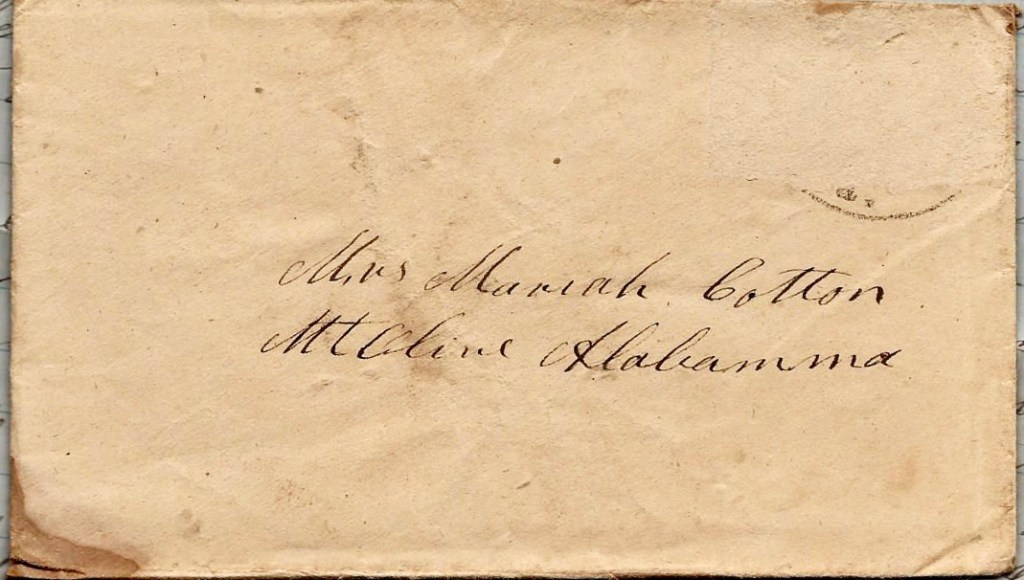 Mrs Mariah Cotton
Mt Olive Alabamma